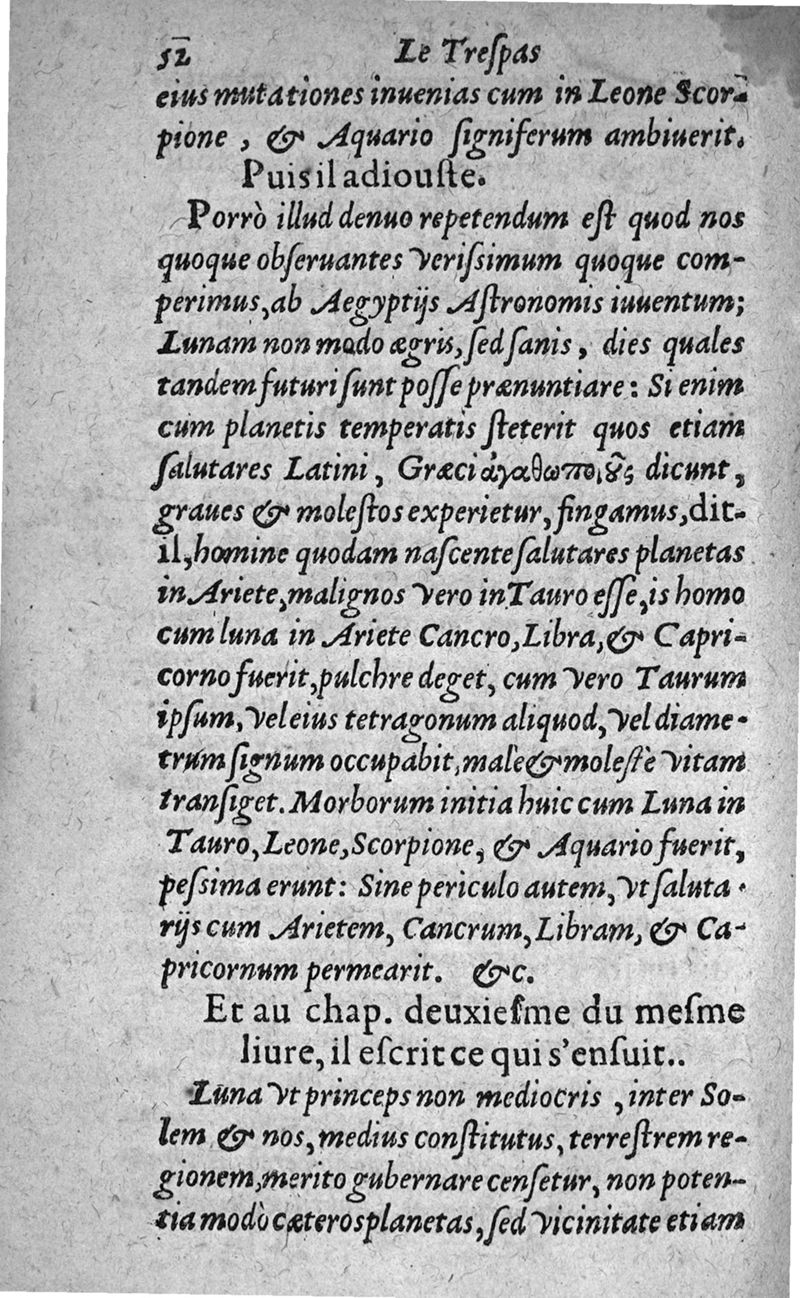 52 Le Treſpas
eius mutationes inuenias cum in Leone Scor-
pione , & Aquario ſigniferum ambiuerit.
Puis il adiouſte.
Porrò illud denuo repetendum eſt quod nos
quoque obſeruantes veriſsimum quoque com-
perimus, ab Aegyptijs Aſtronomis iuuentum;
Lunam non modo ægris, ſed ſanis , dies quales
tandem futuri ſunt poſſe prænuntiare : Si enim
cum planetis temperatis ſteterit quos etiam
ſalutares Latini , Græci ἀγαθωποιȣ̀ς dicunt ,
graues & moleſtos experietur, fingamus, dit-
il, homine quodam naſcente ſalutares planetas
in Ariete, malignos vero in Tauro eſſe, is homo
cum luna in Ariete Cancro, Libra, & Capri-
corno fuerit, pulchre deget, cum vero Taurum
ipſum, vel eius tetragonum aliquod, vel diame-
trum ſignum occupabit, malè & moleſtè vitam
tranſiget. Morborum initia huic cum Luna in
Tauro, Leone, Scorpione, & Aquario fuerit,
peſsima erunt : Sine periculo autem, vt ſaluta-
rijs cum Arietem, Cancrum, Libram, & Ca-
pricornum permearit. &c.
Et au chap. deuxieſme du meſme
liure, il eſcrit ce qui s'enſuit..
Luna vt princeps non mediocris , inter So-
lem & nos, medius conſtitutus, terreſtrem re-
gionem, merito gubernare cenſetur, non poten-
tia modò cæteros planetas, ſed vicinitate etiam